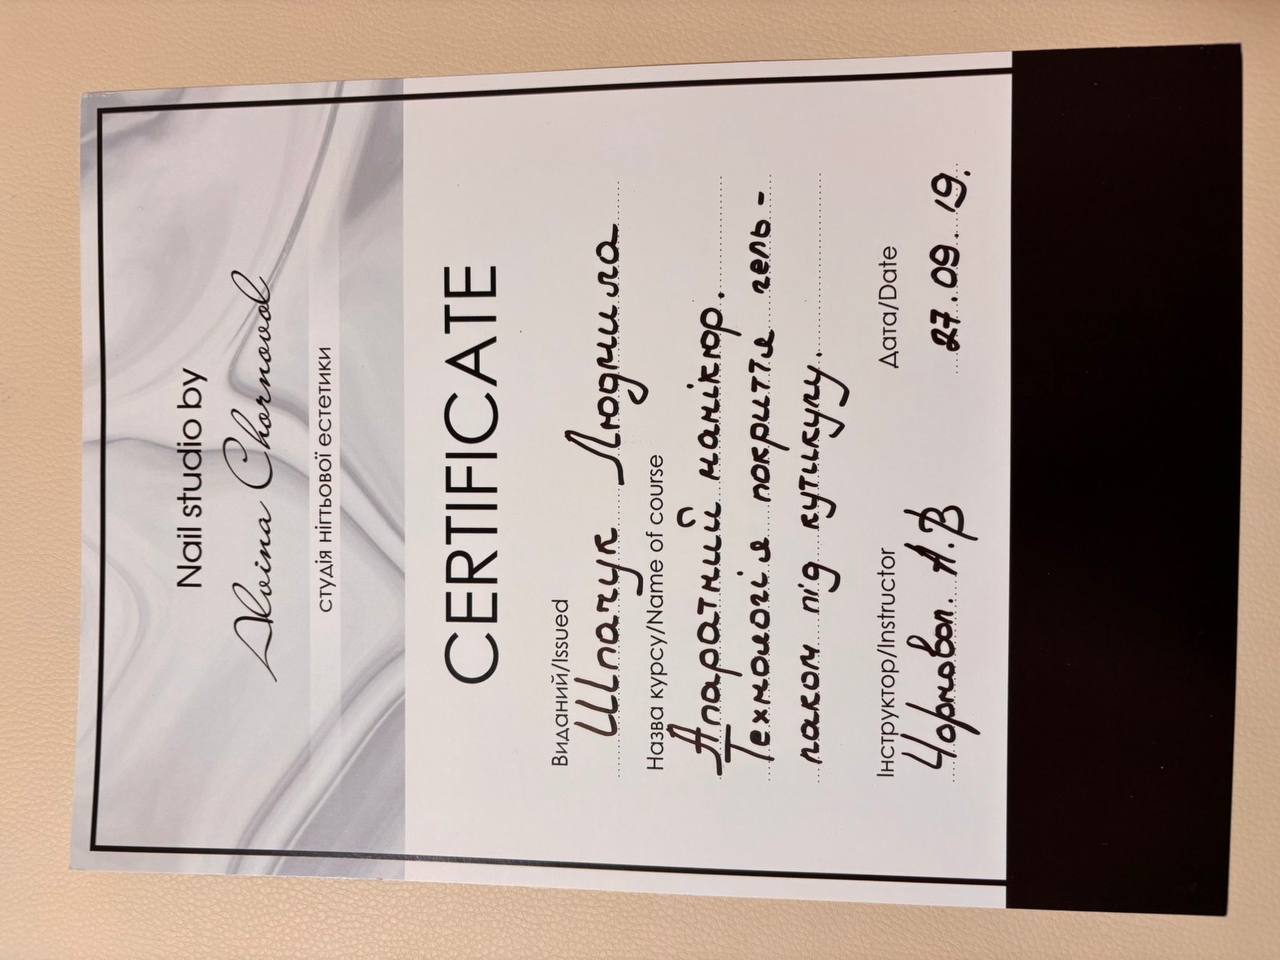 Nail studio by
Alvina Chornovol
студія нігтьової естетики
CERTIFICATE
Виданий/Issued
Шпачук Людмила
Назва курсу/Name of course
Апаратний манікюр.
Технологія покриття гель-
лаком під кутикулу.
Інструктор/Instructor
Чорновол. А.В
Дата/Date
27.09.19.